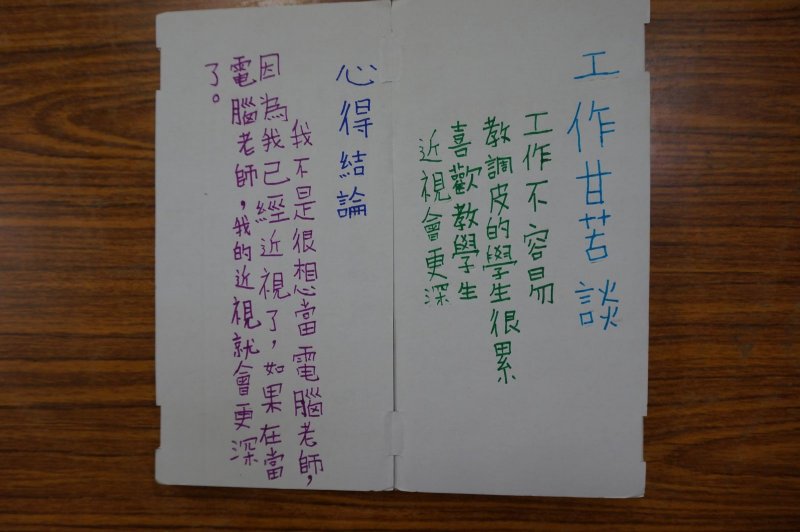 工作甘苦談
工作不容易
教調皮的學生很累
喜歡教學生
近視會更深
心得結論
我不是很想當電腦老師，
因為我已經近視了，如果在當
電腦老師，我的近視就會更深
了。